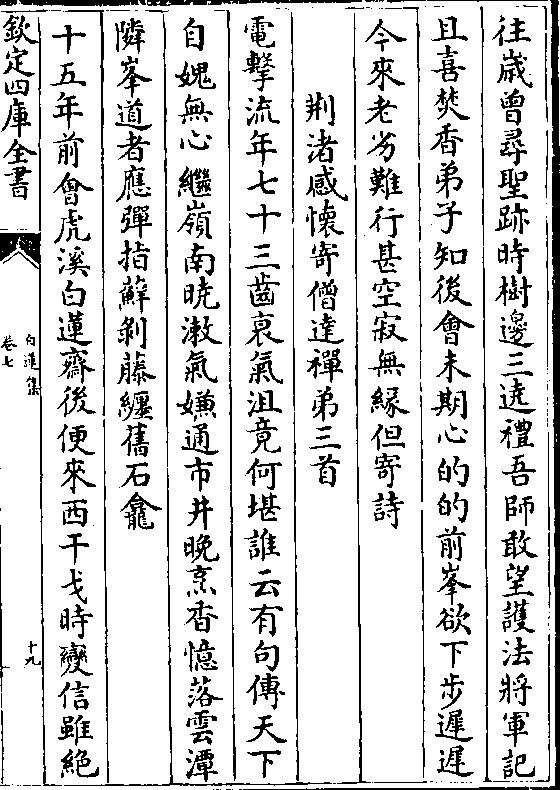 往歲曾尋聖跡時樹邊三遶禮吾師敢望護法將軍記
且喜焚香弟子知後會未期心的的前峯欲下步遲遲
今來老劣難行甚空寂無縁但寄詩
荆渚感懷寄僧達禪弟三首
電擊流年七十三齒衰氣沮竟何堪誰云有句傳天下
自媿無心繼嶺南曉漱氣嫌通市井晚烹香憶落雲潭
隣峯道者應彈指蘚剝藤纒舊石龕
十五年前會虎溪白蓮齋後便來西干戈時變信雖絶
欽定四庫全書
白蓮集
卷七
十九